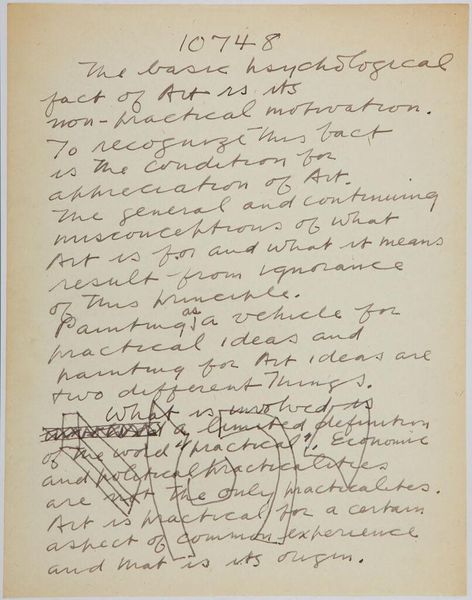 10748
The basic psychological
fact of Art is its
non-practical motivation.
To recognize this fact
is the condition for
appreciation of Art.
The general and continuing
misconceptions of what
Art is for and what it means
result from ignorance
of this principle.
Painting as a vehicle for
practical ideas and
painting for Art ideas are
two different things.
What is involved is
a limited definition
of the word "practical". Economic
and political practicalities
are not the only practicalites.
Art is practical for a certain
aspect of common experience
and that is its origin.